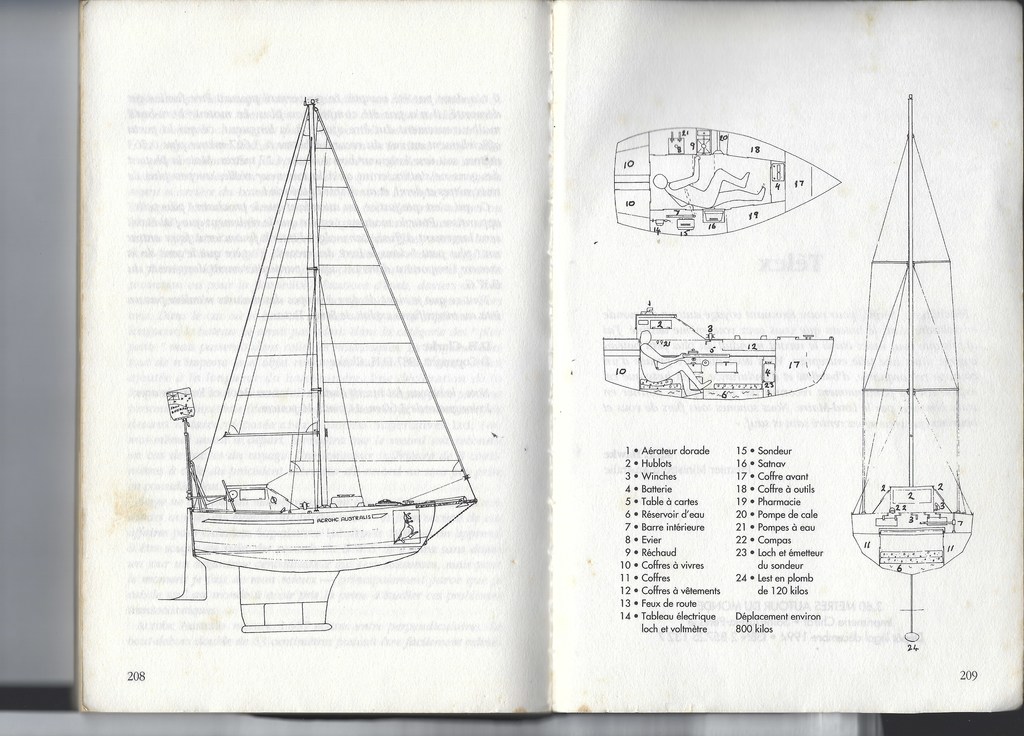 ACROHC AUSTRALIS
208
21
8
9
20
18
10
10
4
17
7
14
15
16
19
2
3
21
12
10
4
17
23
6
1 • Aérateur dorade
2 • Hublots
3 • Winches
4 • Batterie
5 • Table à cartes
6 • Réservoir d'eau
7 • Barre intérieure
8 • Evier
9 • Réchaud
10 • Coffres à vivres
11 • Coffres
12 • Coffres à vêtements
13 • Feux de route
14 • Tableau électrique
loch et voltmètre
15 • Sondeur
16 • Satnav
17 • Coffre avant
18 • Coffre à outils
19 • Pharmacie
20 • Pompe de cale
21 • Pompes à eau
22 • Compas
23 • Loch et émetteur
du sondeur
24 • Lest en plomb
de 120 kilos
Déplacement environ
800 kilos
2
2
2
22
3
3
7
11
11
6
24
209